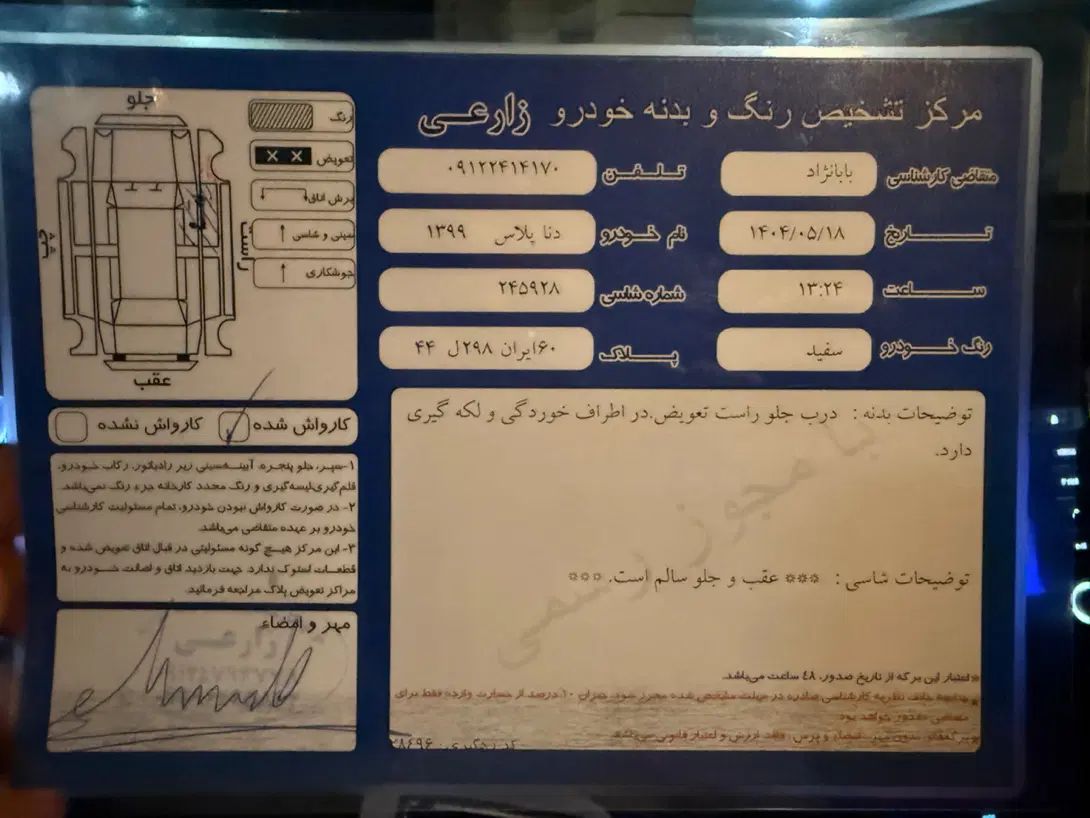 مرکز تشخیص رنگ و بدنه خودرو زارعی
متقاضی کارشناسی بابانژاد
تلفن ۰۹۱۲۲۴۱۴۱۷۰
تاریخ ۱۴۰۴/۰۵/۱۸
نام خودرو دنا پلاس ۱۳۹۹
ساعت ۱۳:۲۴
شماره شاسی ۲۴۵۹۲۸
رنگ خودرو سفید
پلاک ۶۰ایران ۲۹۸ل ۴۴
جلو
عقب
چپ
راست
رنگ
تعویض
برش اتاق
سینی و شاسی
جوشکاری
کارواش شده
کارواش نشده
توضیحات بدنه : درب جلو راست تعویض.در اطراف خوردگی و لکه گیری
دارد.
با مجوز رسمی
توضیحات شاسی : *** عقب و جلو سالم است. ***
*اعتبار این برگه از تاریخ صدور، ٤٨ ساعت می‌باشد.
۱-سپر، جلو پنجره، آیینه،سینی زیر رادیاتور، رکاب خودرو،
قلم‌گیری،لیسه‌گیری و رنگ مجدد کارخانه جزء رنگ نمی‌باشد.
۲- در صورت کارواش نبودن خودرو، تمام مسئولیت کارشناسی
خودرو بر عهده متقاضی می‌باشد.
۳- این مرکز هیچ گونه مسئولیتی در قبال اتاق تعویض شده و
قطعات استوک ندارد. جهت بازدید اتاق و اصالت خودرو به
مراکز تعویض پلاک مراجعه فرمائید.
مهر و امضاء
زارعی